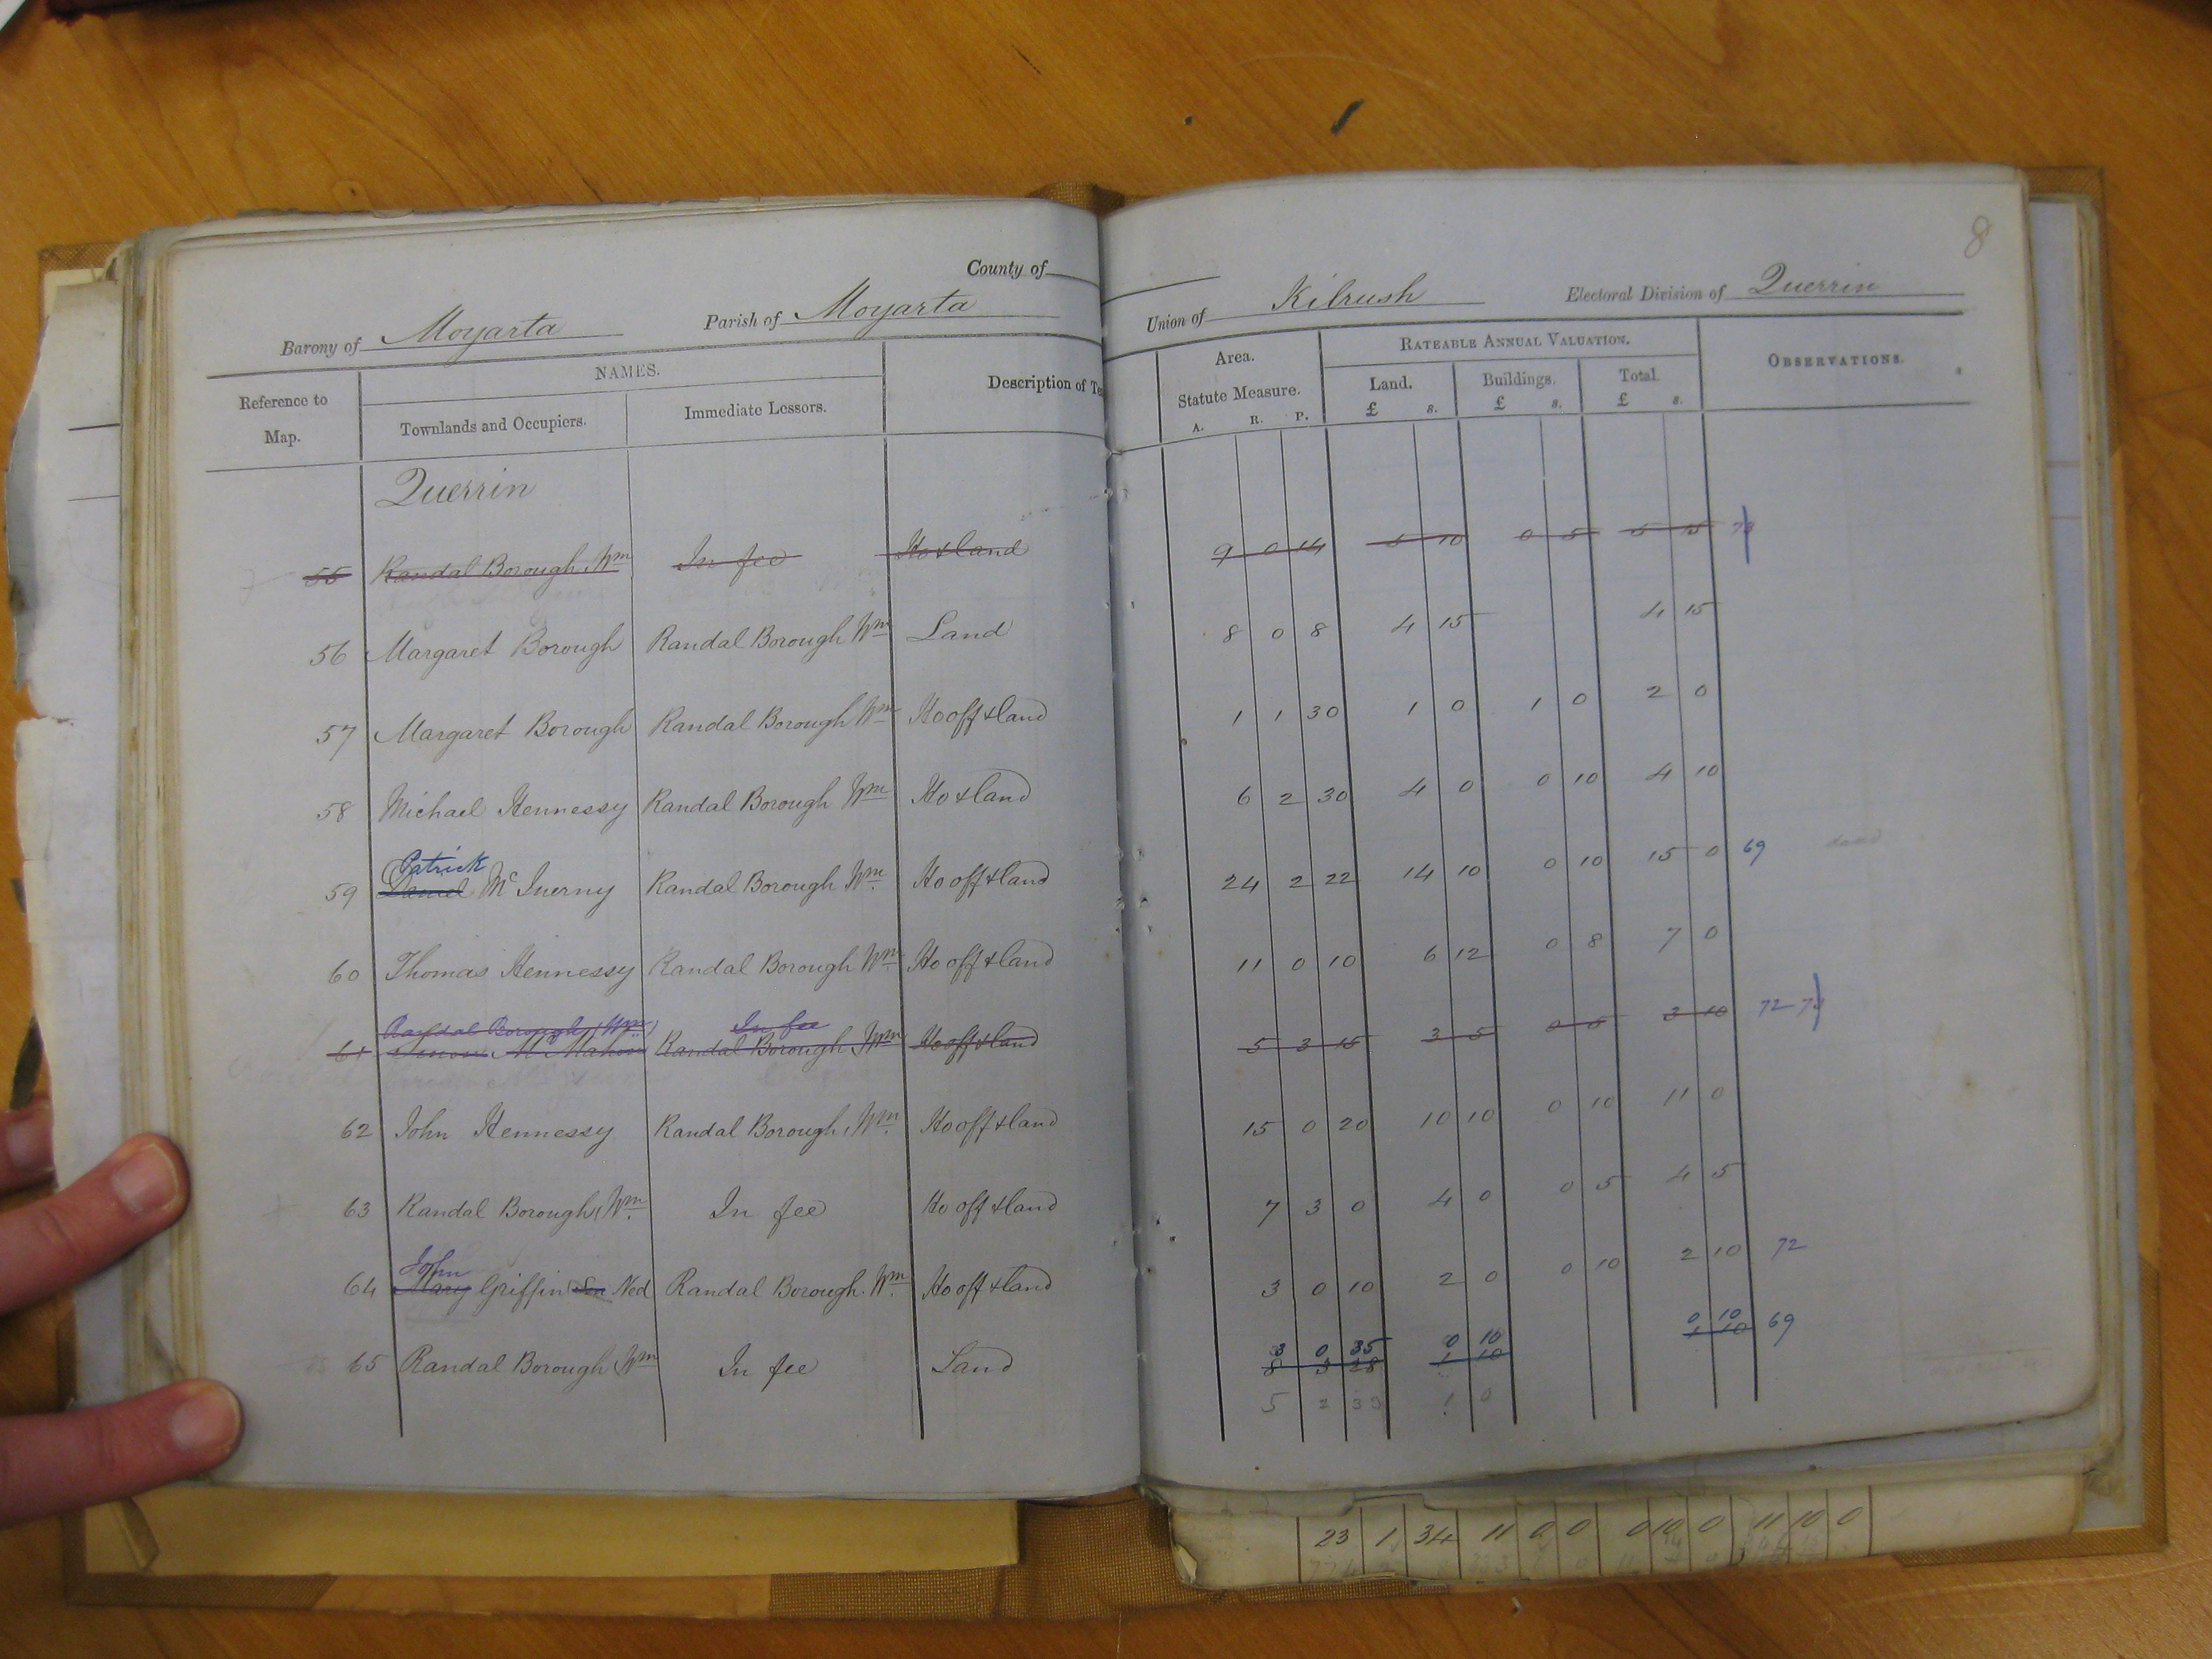 8
County of
Barony of Moyarta Parish of Moyarta Union of Kilrush Electoral Division of Querrin
Reference to Map. NAMES. Description of Te Area. RATEABLE ANNUAL VALUATION. OBSERVATIONS.
Townlands and Occupiers. Immediate Lessors. Statute Measure. Land. Buildings. Total.
A. R. P. £ s. £ s. £ s.
Querrin
55 Randal Borough, Wm In fee Ho & land 9 0 14 5 10 0 5 5 15
56 Margaret Borough Randal Borough Wm Land 8 0 8 4 15 4 15
57 Margaret Borough Randal Borough Wm Ho off & land 1 1 30 1 0 1 0 2 0
58 Michael Hennessy Randal Borough Wm Ho & land 6 2 30 4 0 0 10 4 10
Patrick
59 Daniel Mc Inerny Randal Borough Wm Ho off & land 24 2 22 14 10 0 10 15 0 69
60 Thomas Hennessy Randal Borough Wm Ho off & land 11 0 10 6 12 0 8 7 0
Randal Borough (Wm) In fee
61 Simon McMahon Randal Borough, Wm Ho off & land 5 3 15 3 5 0 5 3 10 72
62 John Hennessy Randal Borough, Wm Ho off & land 15 0 20 10 10 0 10 11 0
63 Randal Borough, Wm In fee Ho off & land 7 3 0 4 0 0 5 4 5
John
64 Mary Griffin (Son Ned Randal Borough. Wm Ho off & land 3 0 10 2 0 0 10 2 10 72
3 0 35 0 10 0 10
65 Randal Borough (Wm In fee Land 8 3 28 1 10 1 10 69
5 2 33 1 0
23 1 34 11 0 0 0 10 0 11 10 0